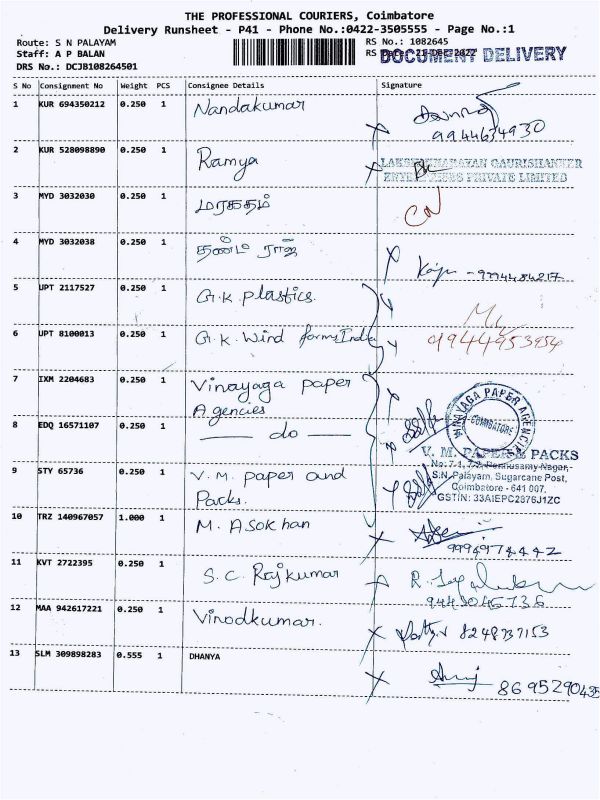 THE PROFESSIONAL COURIERS, Coimbatore
Delivery Runsheet - P41 - Phone No.:0422-3505555 - Page No.:1
Route: S N PALAYAM
Staff: A P BALAN
DRS No.: DCJB108264501
RS No.: 1082645
RS Date: 21-DEC-2022
DOCUMENT DELIVERY
S No Consignment No Weight PCS Consignee Details Signature
1 KUR 694350212 0.250 1 Nandakumar
9944634930
2 KUR 528098890 0.250 1 Ramya
LAKSHMINARAYAN GAURISHANKER
ENTERPRISES PRIVATE LIMITED
3 MYD 3032030 0.250 1 மரகதம்
4 MYD 3032038 0.250 1 ராஜ்
5 UPT 2117527 0.250 1 G.K plastics.
6 UPT 8100013 0.250 1 G.K. Wind forms India
9944953954
7 IXM 2204683 0.250 1 Vinayaga paper
Agencies
VINAYAGA PAPER AGENCIES
COIMBATORE
8 EDQ 16571107 0.250 1 — do —
V. M. PAPERS & PACKS
No: 7-1, 7-2, Pannusamy Nagar,
S.N. Palayam, Sugarcane Post,
Coimbatore - 641 007.
GSTIN: 33AIEPC2876J1ZC
9 STY 65736 0.250 1 V. M. paper and
Packs.
10 TRZ 140967057 1.000 1 M. ASOKhan
9994974442
11 KVT 2722395 0.250 1 S.C. Rajkumar
9443045736
12 MAA 942617221 0.250 1 Vinodkumar.
8248737153
13 SLM 309898283 0.555 1 DHANYA
8695290435